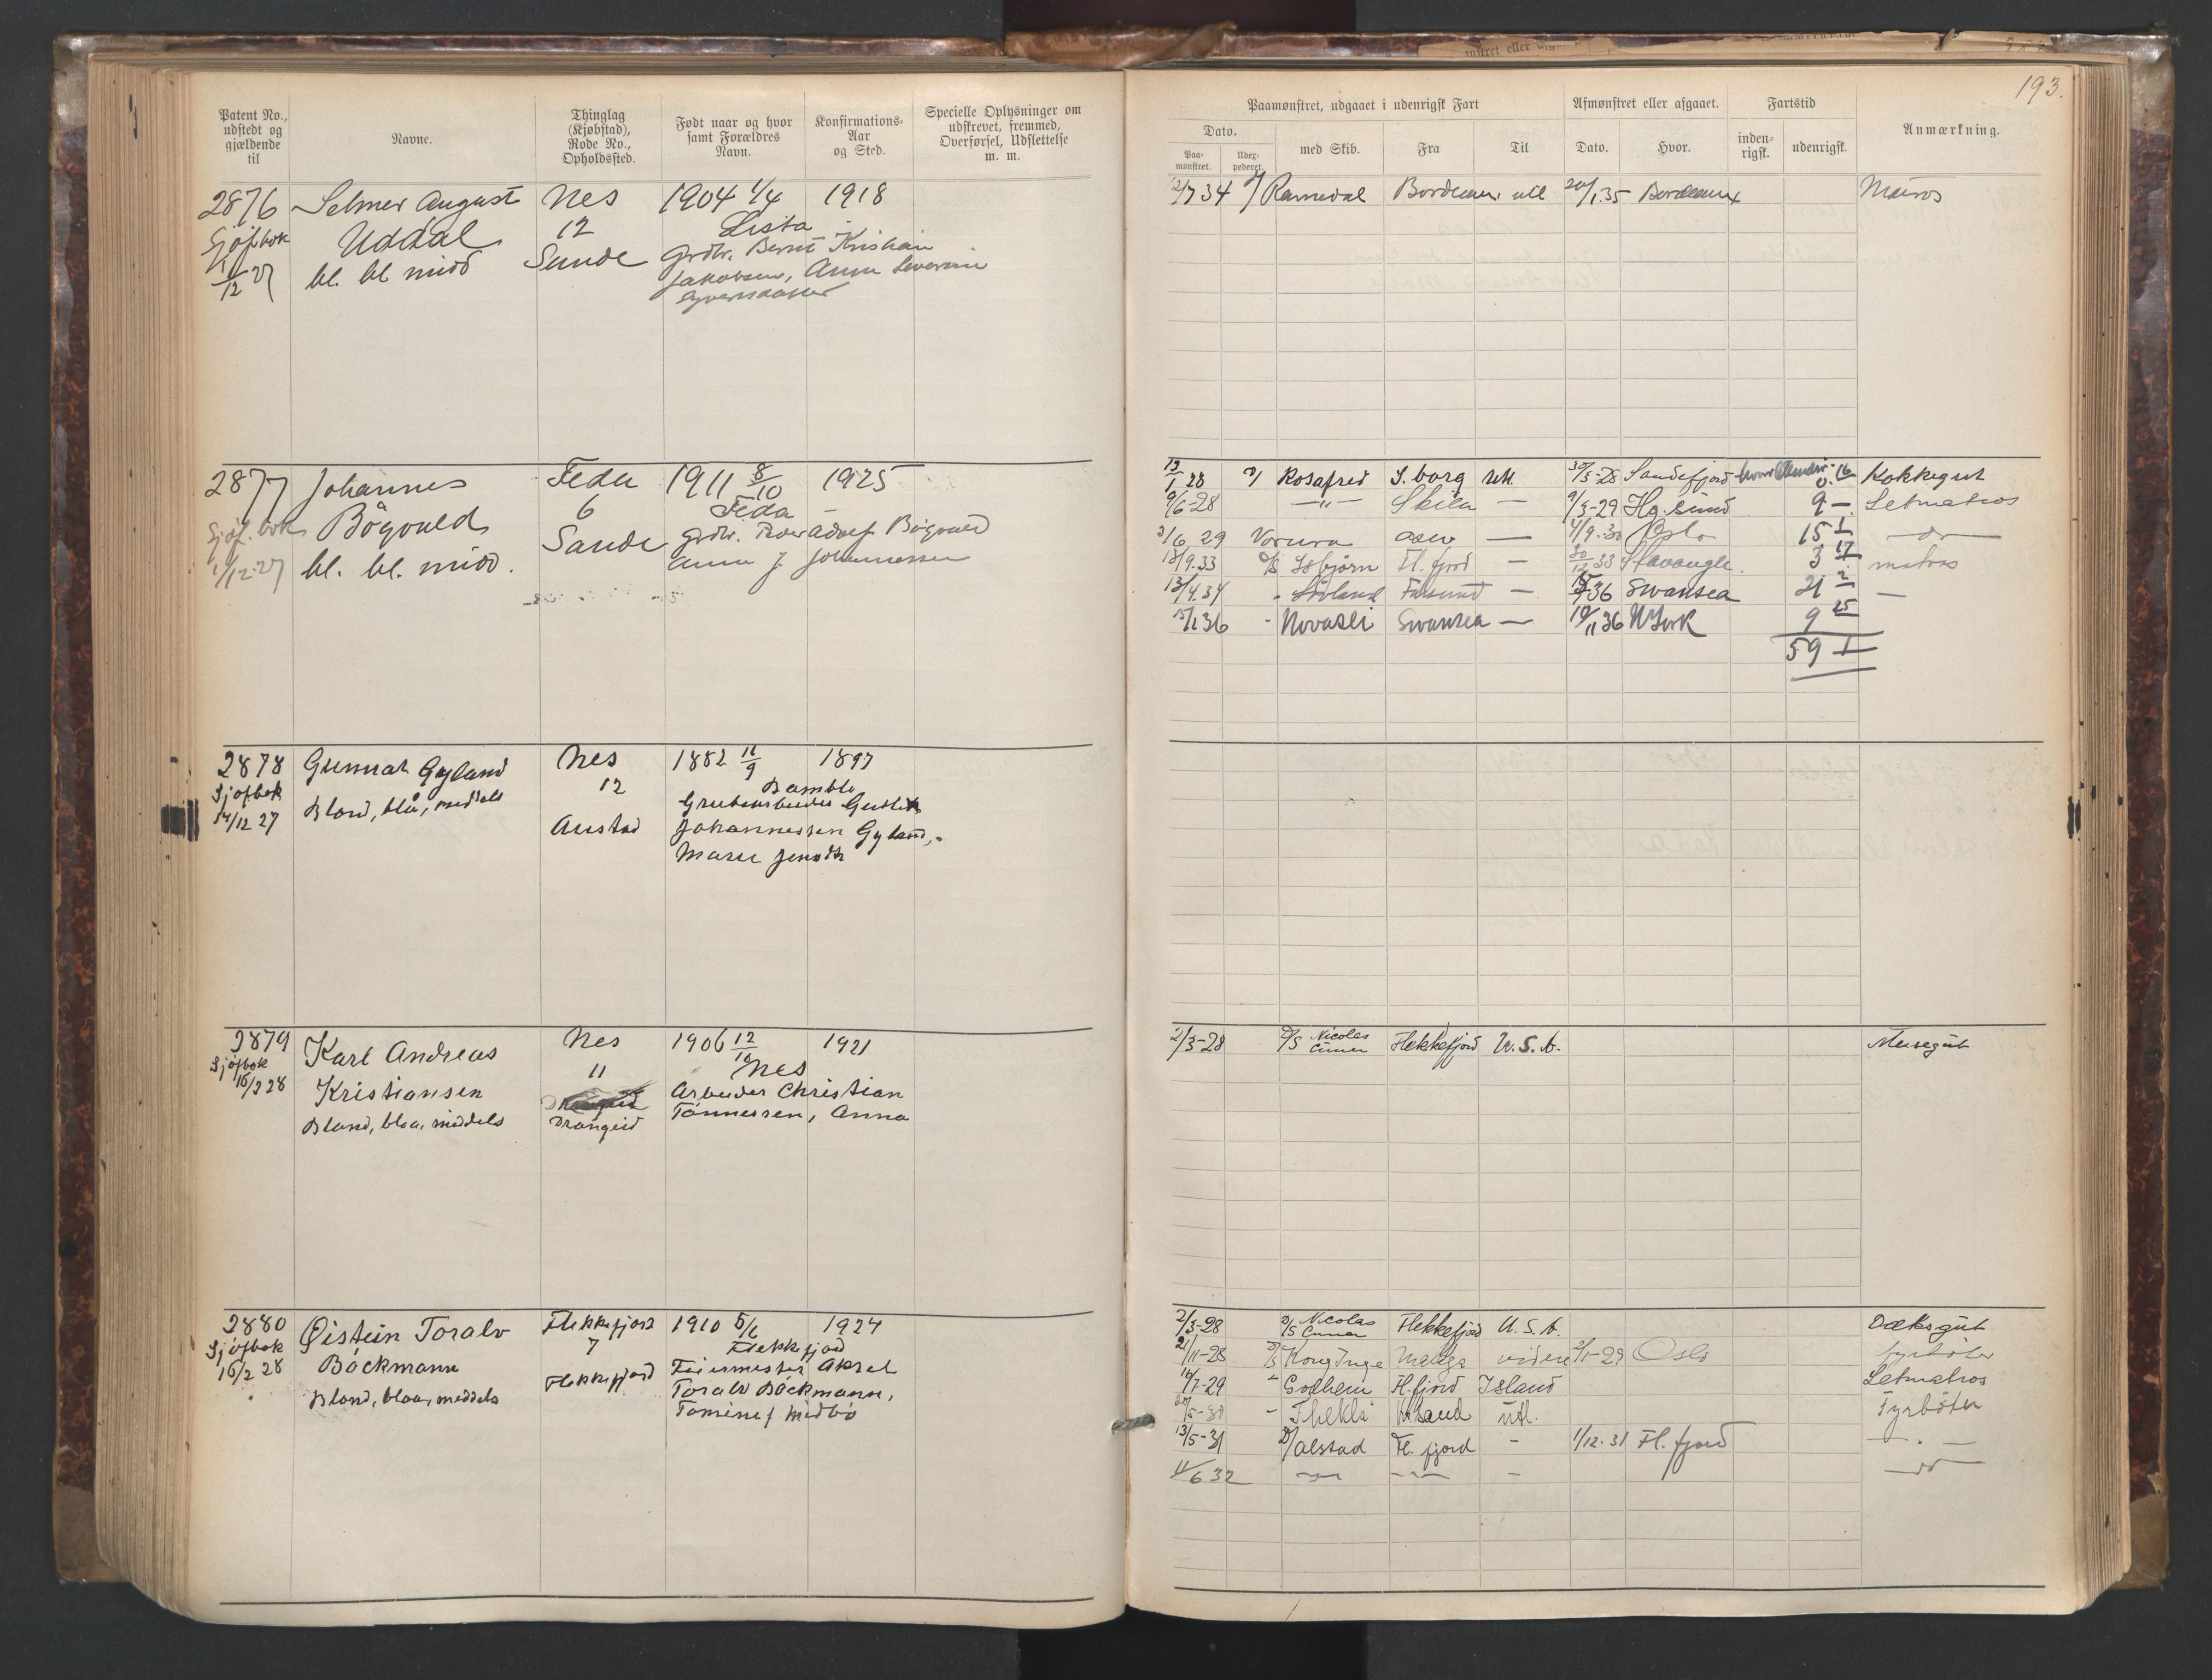 193.
Patent No., udstedt og gjældende til
Navne.
Thinglag (Kjøbstad), Rode No., Opholdssted.
Født naar og hvor samt Forældres Navn.
Konfirmations-Aar og Sted.
Specielle Oplysninger om udskrevet, fremmed, Overførsel, Udslettelse m. m.
Paamønstret, udgaaet i udenrigsk Fart
Dato.
Paa-mønstret.
Udex-pederet.
med Skib.
Fra
Til
Afmønstret eller afgaaet.
Dato.
Hvor.
Fartstid
inden-rigsk.
udenrigsk.
Anmærkning.
2876 Selmer August Nes 1904 1/4 1918
Sjøfbok Uddal 12 Lista
1/12 27 bl. bl midd Sunde Grdbr. Bernt Kristian
Jakobsen, Anna Severine
2/7 34 Ramdal Bordeaux utl 20/1.35 Bordeaux Matros
2877 Johannes Feda 1911 8/10 1925
Sjøf. bok Bøgvald 6 Feda
1/12-27 bl. bl. midd. Sande Grdbr. Peder Adolf Bøgvald
Anna J. Johannessen
13/1 28 Rosafred S. borg utl. 30/5-28 Sandefjord 16 Kokkegut
9/6-28 —"— Skien — 9/3-29 Hg.sund 9 — Letmatros
3/6 29 Vorma — 4/9-30 Oslo 15 1 — do —
13/9.33 D/S Isbjørn Fl. fjord — 30/12 33 Stavanger. 3 17 matros
13/4.34 - Farsund — 36 Swansea 21 2 —
15/1 36 - Novasli Swansea — 10/11 36 N York 9 25
59 1
2878 Gunnar Gyland Nes 1882 11/9 1897
Sjøfbok Blond, blå, middels 12 Bamble
14/12 27 Grubearbeider
Austad Johannessen Gyland,
2879 Karl Andreas Nes 1906 12/10 1921
Sjøfbok 11 Nes
16/2 28 Kristiansen Arbeider Christian
Blond, blaa, middels Drangeid Tønnessen, Anna
2/3-28 D/S Nicolas Cuneo Flekkefjord U.S.A. Messegut
2880 Øistein Toralv Flekkefjord 1910 5/6 1924
Sjøfbok Bøckmann 7 Flekkefjord
16/2 28 Blond, blaa, middels Flekkefjord Feiermester Aksel
Toralv Bøckmann,
Tomine f Midbø
2/3-28 D/S Nicolas Cuneo Flekkefjord U.S.A. Dæksgut
21/11-28 D/S Kong Inge Malaga videre 2/1-29 Oslo Fyrbøter
10/7-29 - Solheim Fl.fjord Island Letmatros
5-30 - Thekla Kr.sand utl. Fyrbøter
13/5-31 D/ Alstad Fl. fjord - 1/12-31 Fl. fjord — " —
11/6 32 —"— —"— - — do —